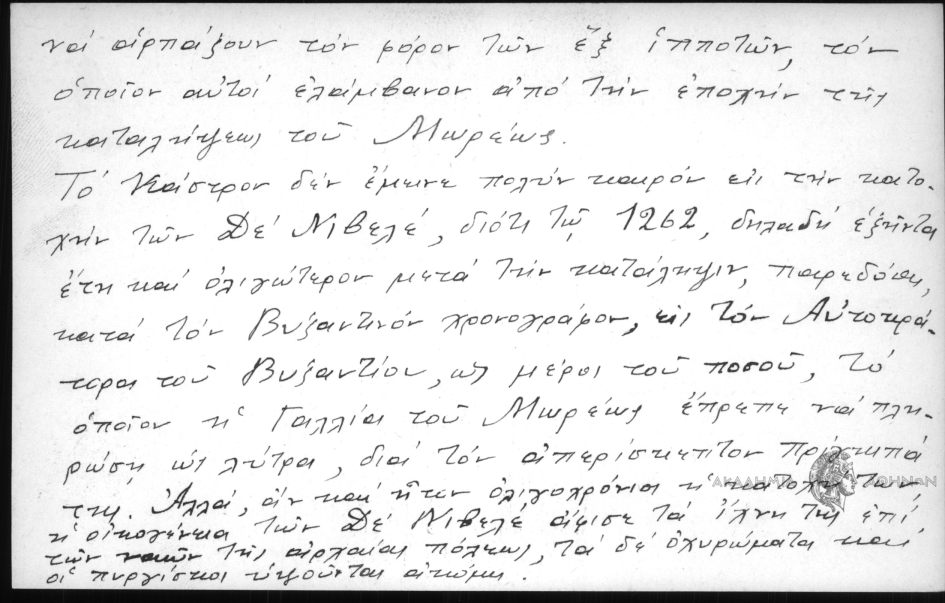 νά ἁρπάζουν τόν φόρον τῶν ἕξ ἱπποτῶν, τόν
ὁποῖον αὐτοί ἐλάμβανον ἀπό τήν ἐποχήν τῆς
καταλήψεως τοῦ Μωρέως.
Τό Κάστρον δέν ἔμεινε πολύν καιρόν εἰς τήν κατο-
χήν τῶν Δέ Νιβελέ, διότι τῷ 1262, δηλαδή ἑξῆντα
ἔτη καί ὀλιγώτερον μετά τήν κατάληψιν, παρεδόθη,
κατά τόν Βυζαντινόν χρονογράφον, εἰς τόν Αὐτοκρά-
τορα τοῦ Βυζαντίου, ὡς μέρος τοῦ ποσοῦ, τό
ὁποῖον ἡ Γαλλία τοῦ Μωρέως ἔπρεπε νά πλη-
ρώσῃ ὡς λύτρα, διά τόν ἀπερίσκεπτον Πρίγκιπά
της. Ἀλλά, ἄν καί ἦταν ὀλιγοχρόνιος ἡ κατοχή των,
ἡ οἰκογένεια τῶν Δέ Νιβελέ ἄφισε τά ἴχνη της ἐπί
τῶν τῆς ἀρχαίας πόλεως, τά δέ ὀχυρώματα καί
οἱ πυργίσκοι ὑψοῦνται ἀκόμη.
ΑΚΑΔΗΜΙΑ ΑΘΗΝΩΝ